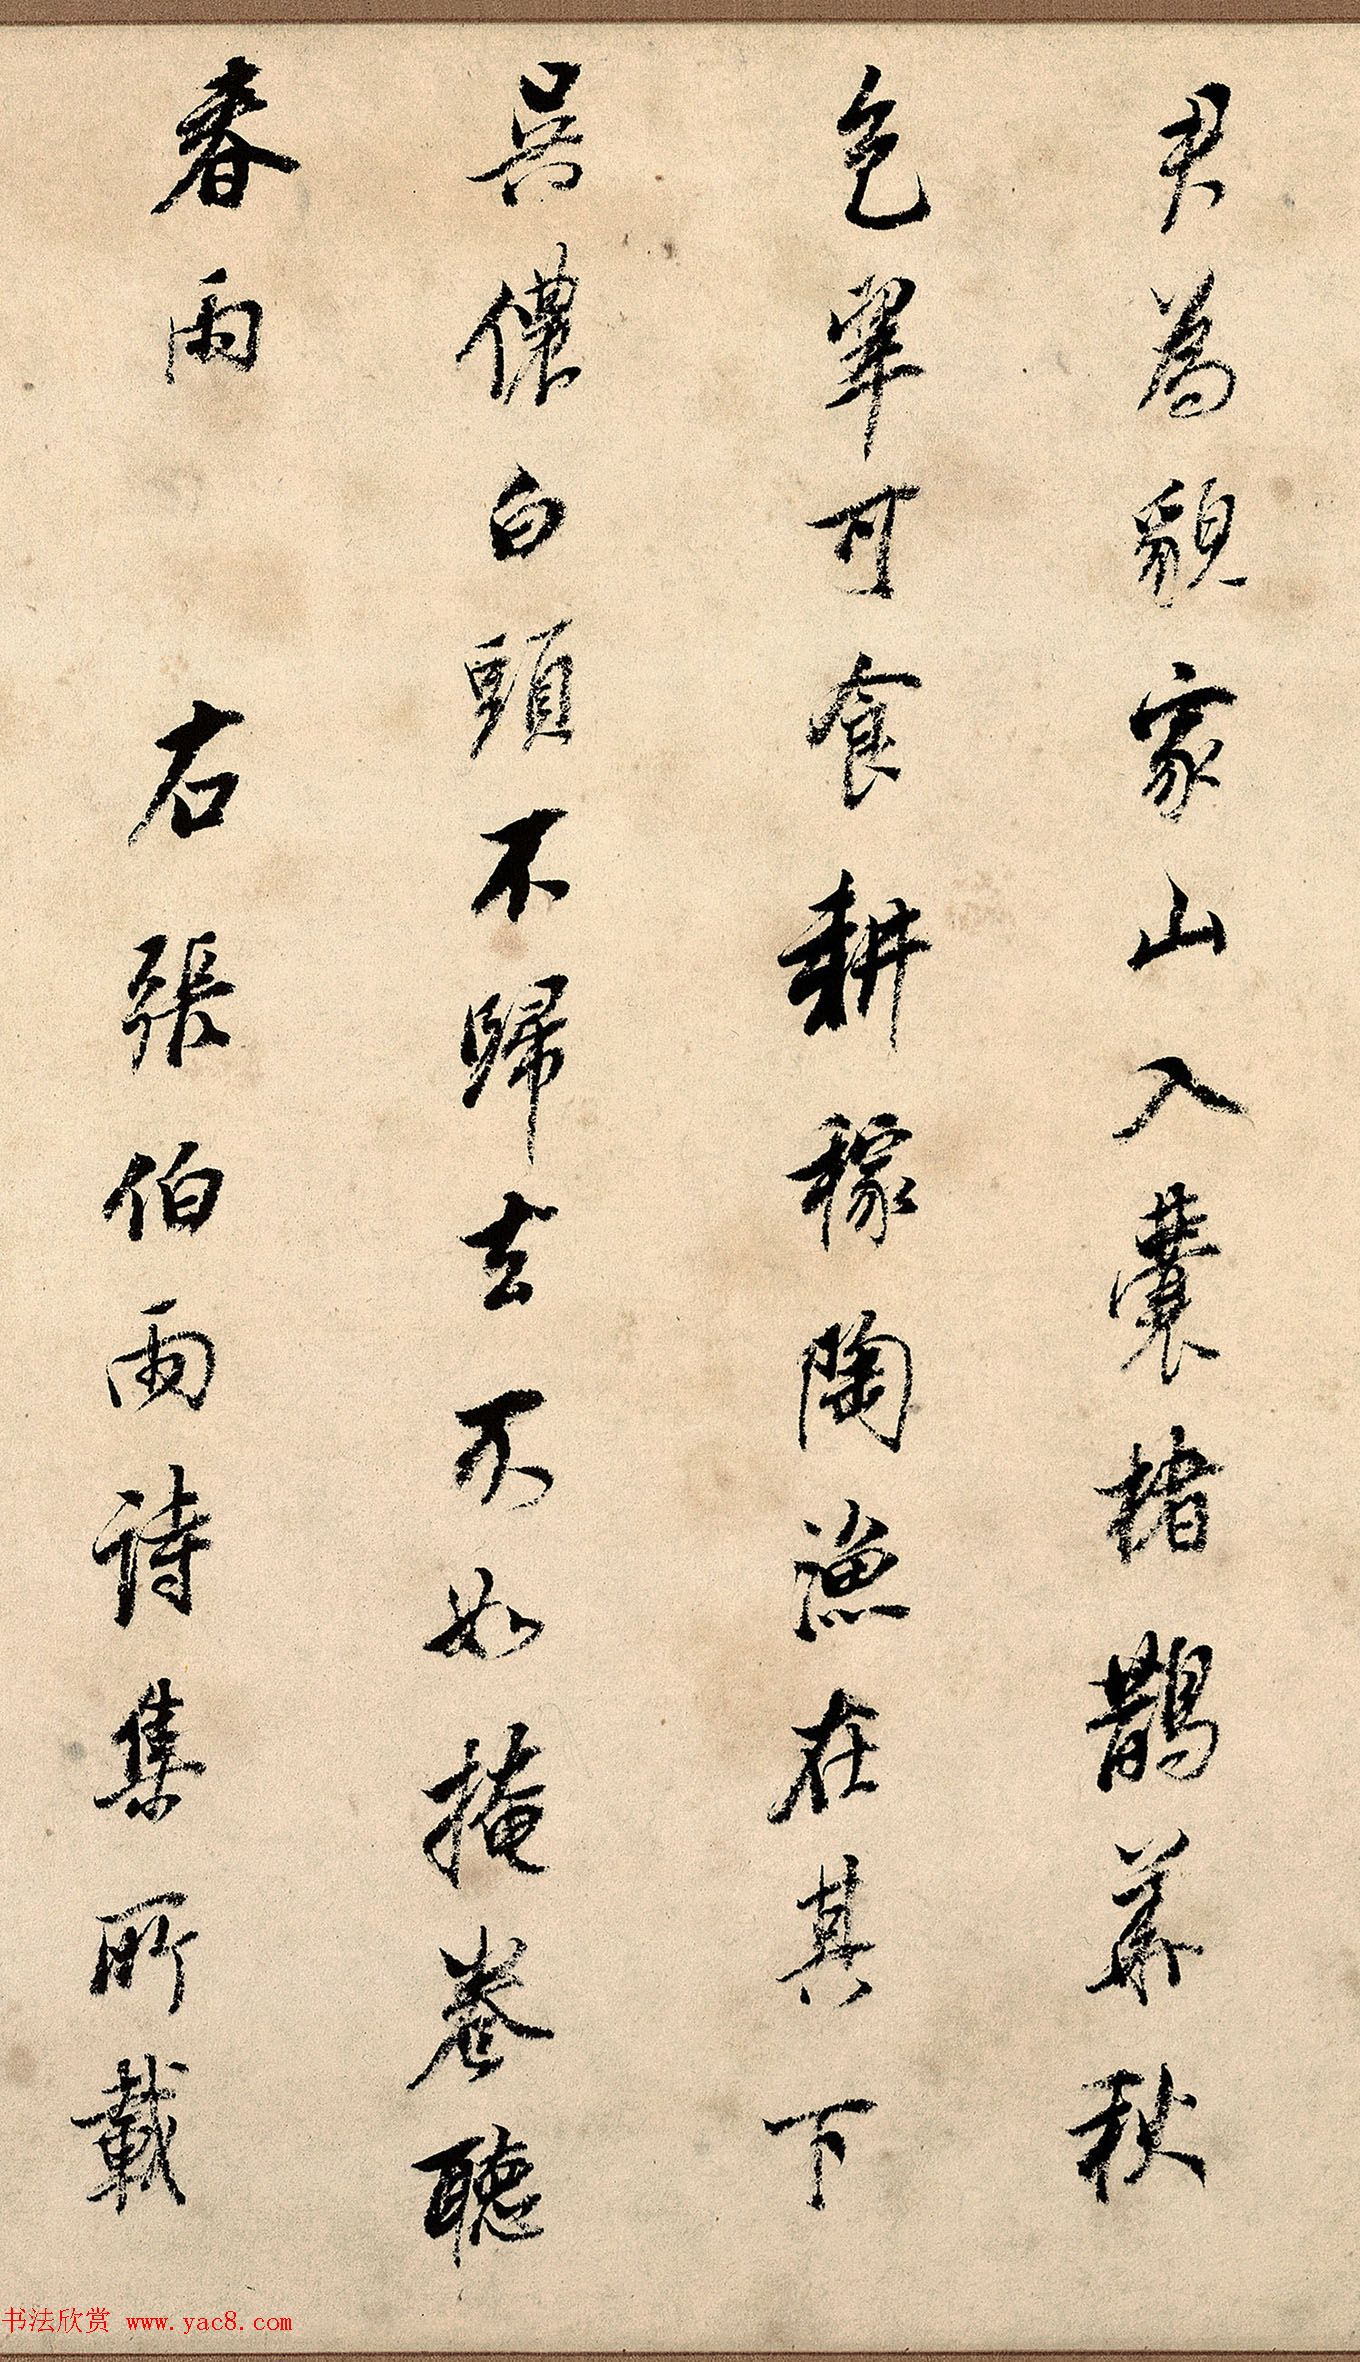 尹為貌家山入囊楮鵲華秋
色翠可食耕稼陶漁在其下
吳儂白頭不歸去不如掩卷聽
春雨 右張伯雨詩集所載
书法欣赏 www.yac8.com